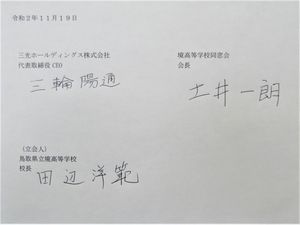 令和２年１１月１９日
三光ホールディングス株式会社
代表取締役CEO
三輪陽通
境高等学校同窓会
会長
土井一朗
（立会人）
鳥取県立境高等学校
校長
田辺洋範